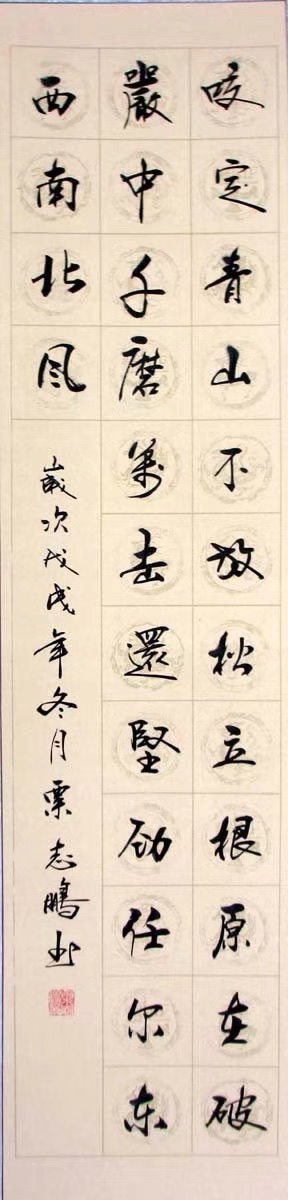 咬定青山不放松立根原在破
嚴中千磨萬击還堅劲任尔东
西南北风
歲次戊戌年冬月栗志鵬书